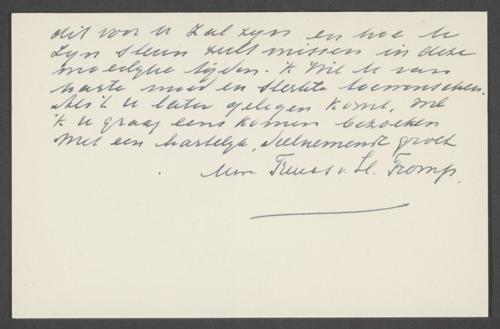 dit voor U zal zijn en hoe U
Zijn steun zult missen in deze
moeilijke tijden. 'k Wil U van
harte moed en sterkte toewenschen.
Als 't U later gelegen komt, wil
'k U graag eens komen bezoeken
Met een hartelijk, deelnemende groet
Mevr Truus v. Tromp.